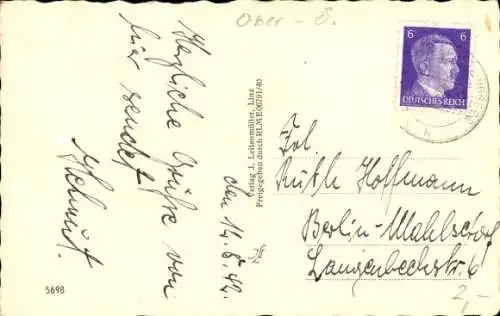 Ober - Ö.
Herzliche Grüße von
hier sendet
Helmut.
den 14.8.42.
Verlag J. Leitenmüller, Linz
Freigegeben durch RLM E06791/40
6 6
DEUTSCHES REICH
Frl.
Ruth Hoffmann
Berlin-Mahlsdorf
Langenbeckstr. 6
2,-
5698